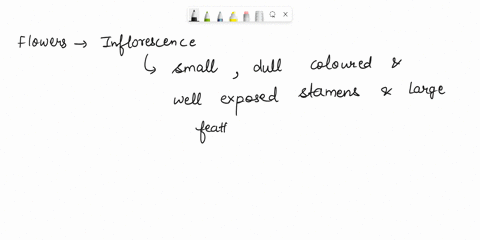 Flowers → Inflorescence
↳ small, dull coloured &
well exposed stamens & large
feath